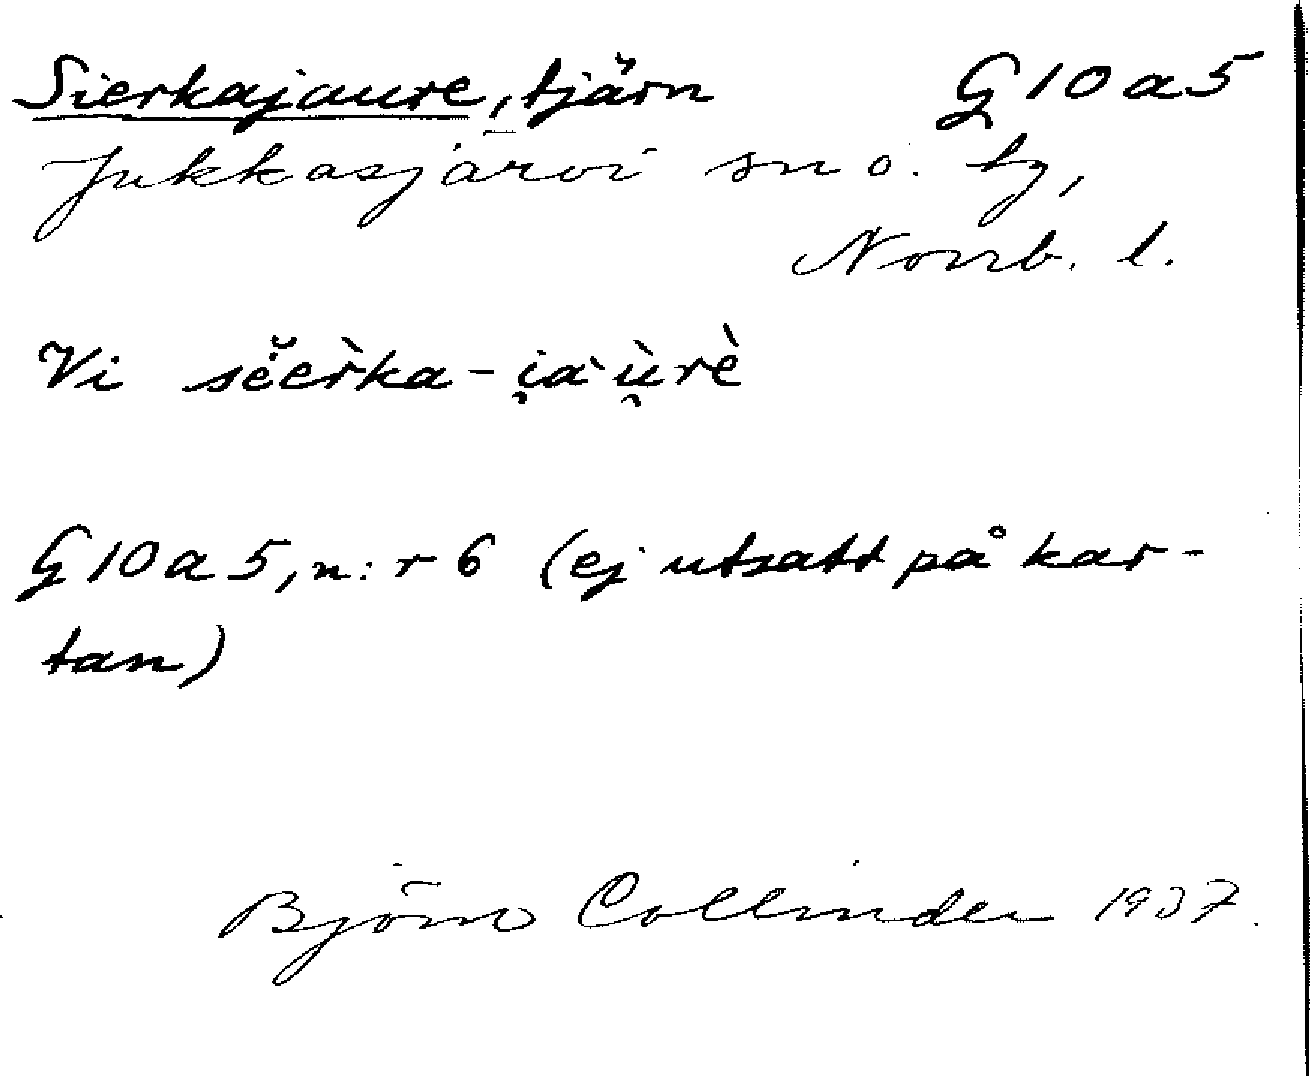 Sierkajaure, tjärn G10a5
Jukkasjärvi sn o. tg,
Norrb. l.
Vi sĕ̇er̀ka-i̯a`ù̯rè
G10a5, n:r 6 (ej utsatt på kar-
tan)
Björn Collinder 1937.